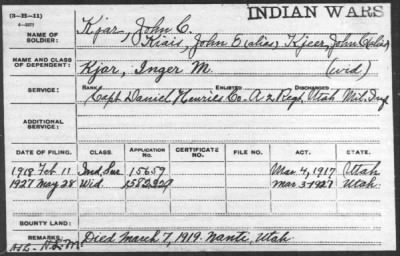 (3-H-11)
INDIAN WARS
NAME OF SOLDIER: Kjar, John C.
Kiais, John C (alias) Kjcer, John C (alias)
NAME AND CLASS OF DEPENDENT: Kjar, Inger M. (wid)
SERVICE: RANK ENLISTED DISCHARGED
Capt Daniel Henries Co. A 2 Regt. Utah Mil. Inf
ADDITIONAL SERVICE:
DATE OF FILING. CLASS. APPLICATION NO. CERTIFICATE NO. FILE NO. ACT. STATE.
1918 Feb 11 Ind. Sur. 15657 Mar 4, 1917 Utah
1927 May 28 Wid. Mar 3-1927 Utah.
BOUNTY LAND:
REMARKS: Died March 7, 1919. Manti, Utah